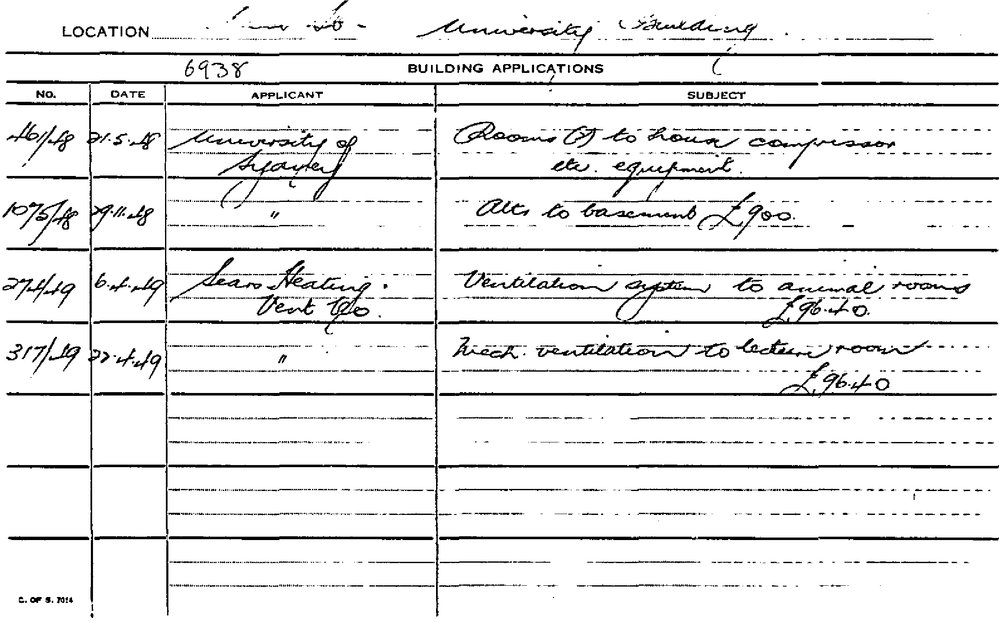 LOCATION University Building
6938 BUILDING APPLICATIONS
NO. DATE APPLICANT SUBJECT
461/48 21.5.48 University of Rooms (2) to house compressor
Sydney etc. equipment.
1075/48 29.11.48 " Alts to basement £900.
274/49 6.4.49 Sears Heating. Ventilation system to animal rooms
Vent Co. £96.4.0.
317/49 22.4.49 " Mech. ventilation to lecture room
£96.4.0
C. OF S. 7014